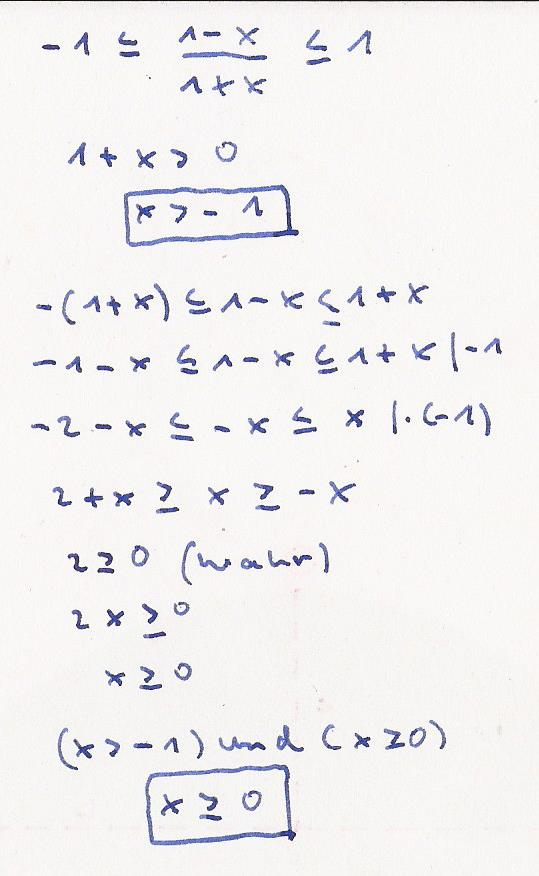 -1 ≤ (1-x)/(1+x) ≤ 1
1+x > 0
x > -1
-(1+x) ≤ 1-x ≤ 1+x
-1-x ≤ 1-x ≤ 1+x |-1
-2-x ≤ -x ≤ x |·(-1)
2+x ≥ x ≥ -x
2 ≥ 0 (wahr)
2x ≥ 0
x ≥ 0
(x > -1) und (x ≥ 0)
x ≥ 0